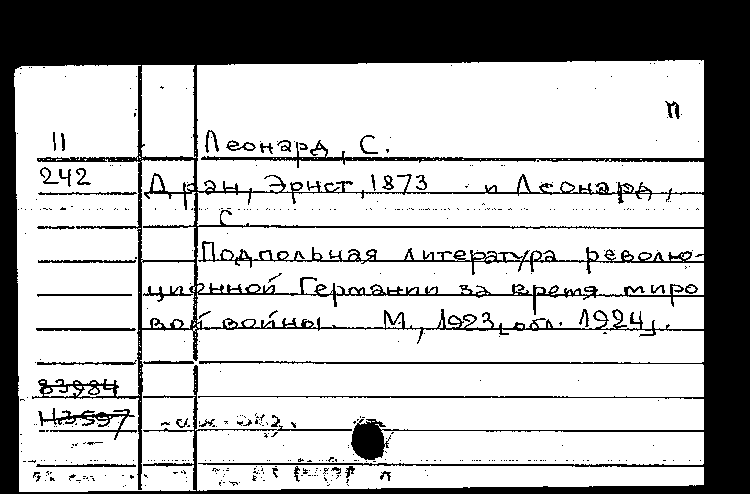 п
II Леонард, С.
242 Дран, Эрнст, 1873 и Леонард,
С.
Подпольная литература револю-
ционной Германии за время миро
вой войны. М., 1923[обл. 1924].
83984
Н3597